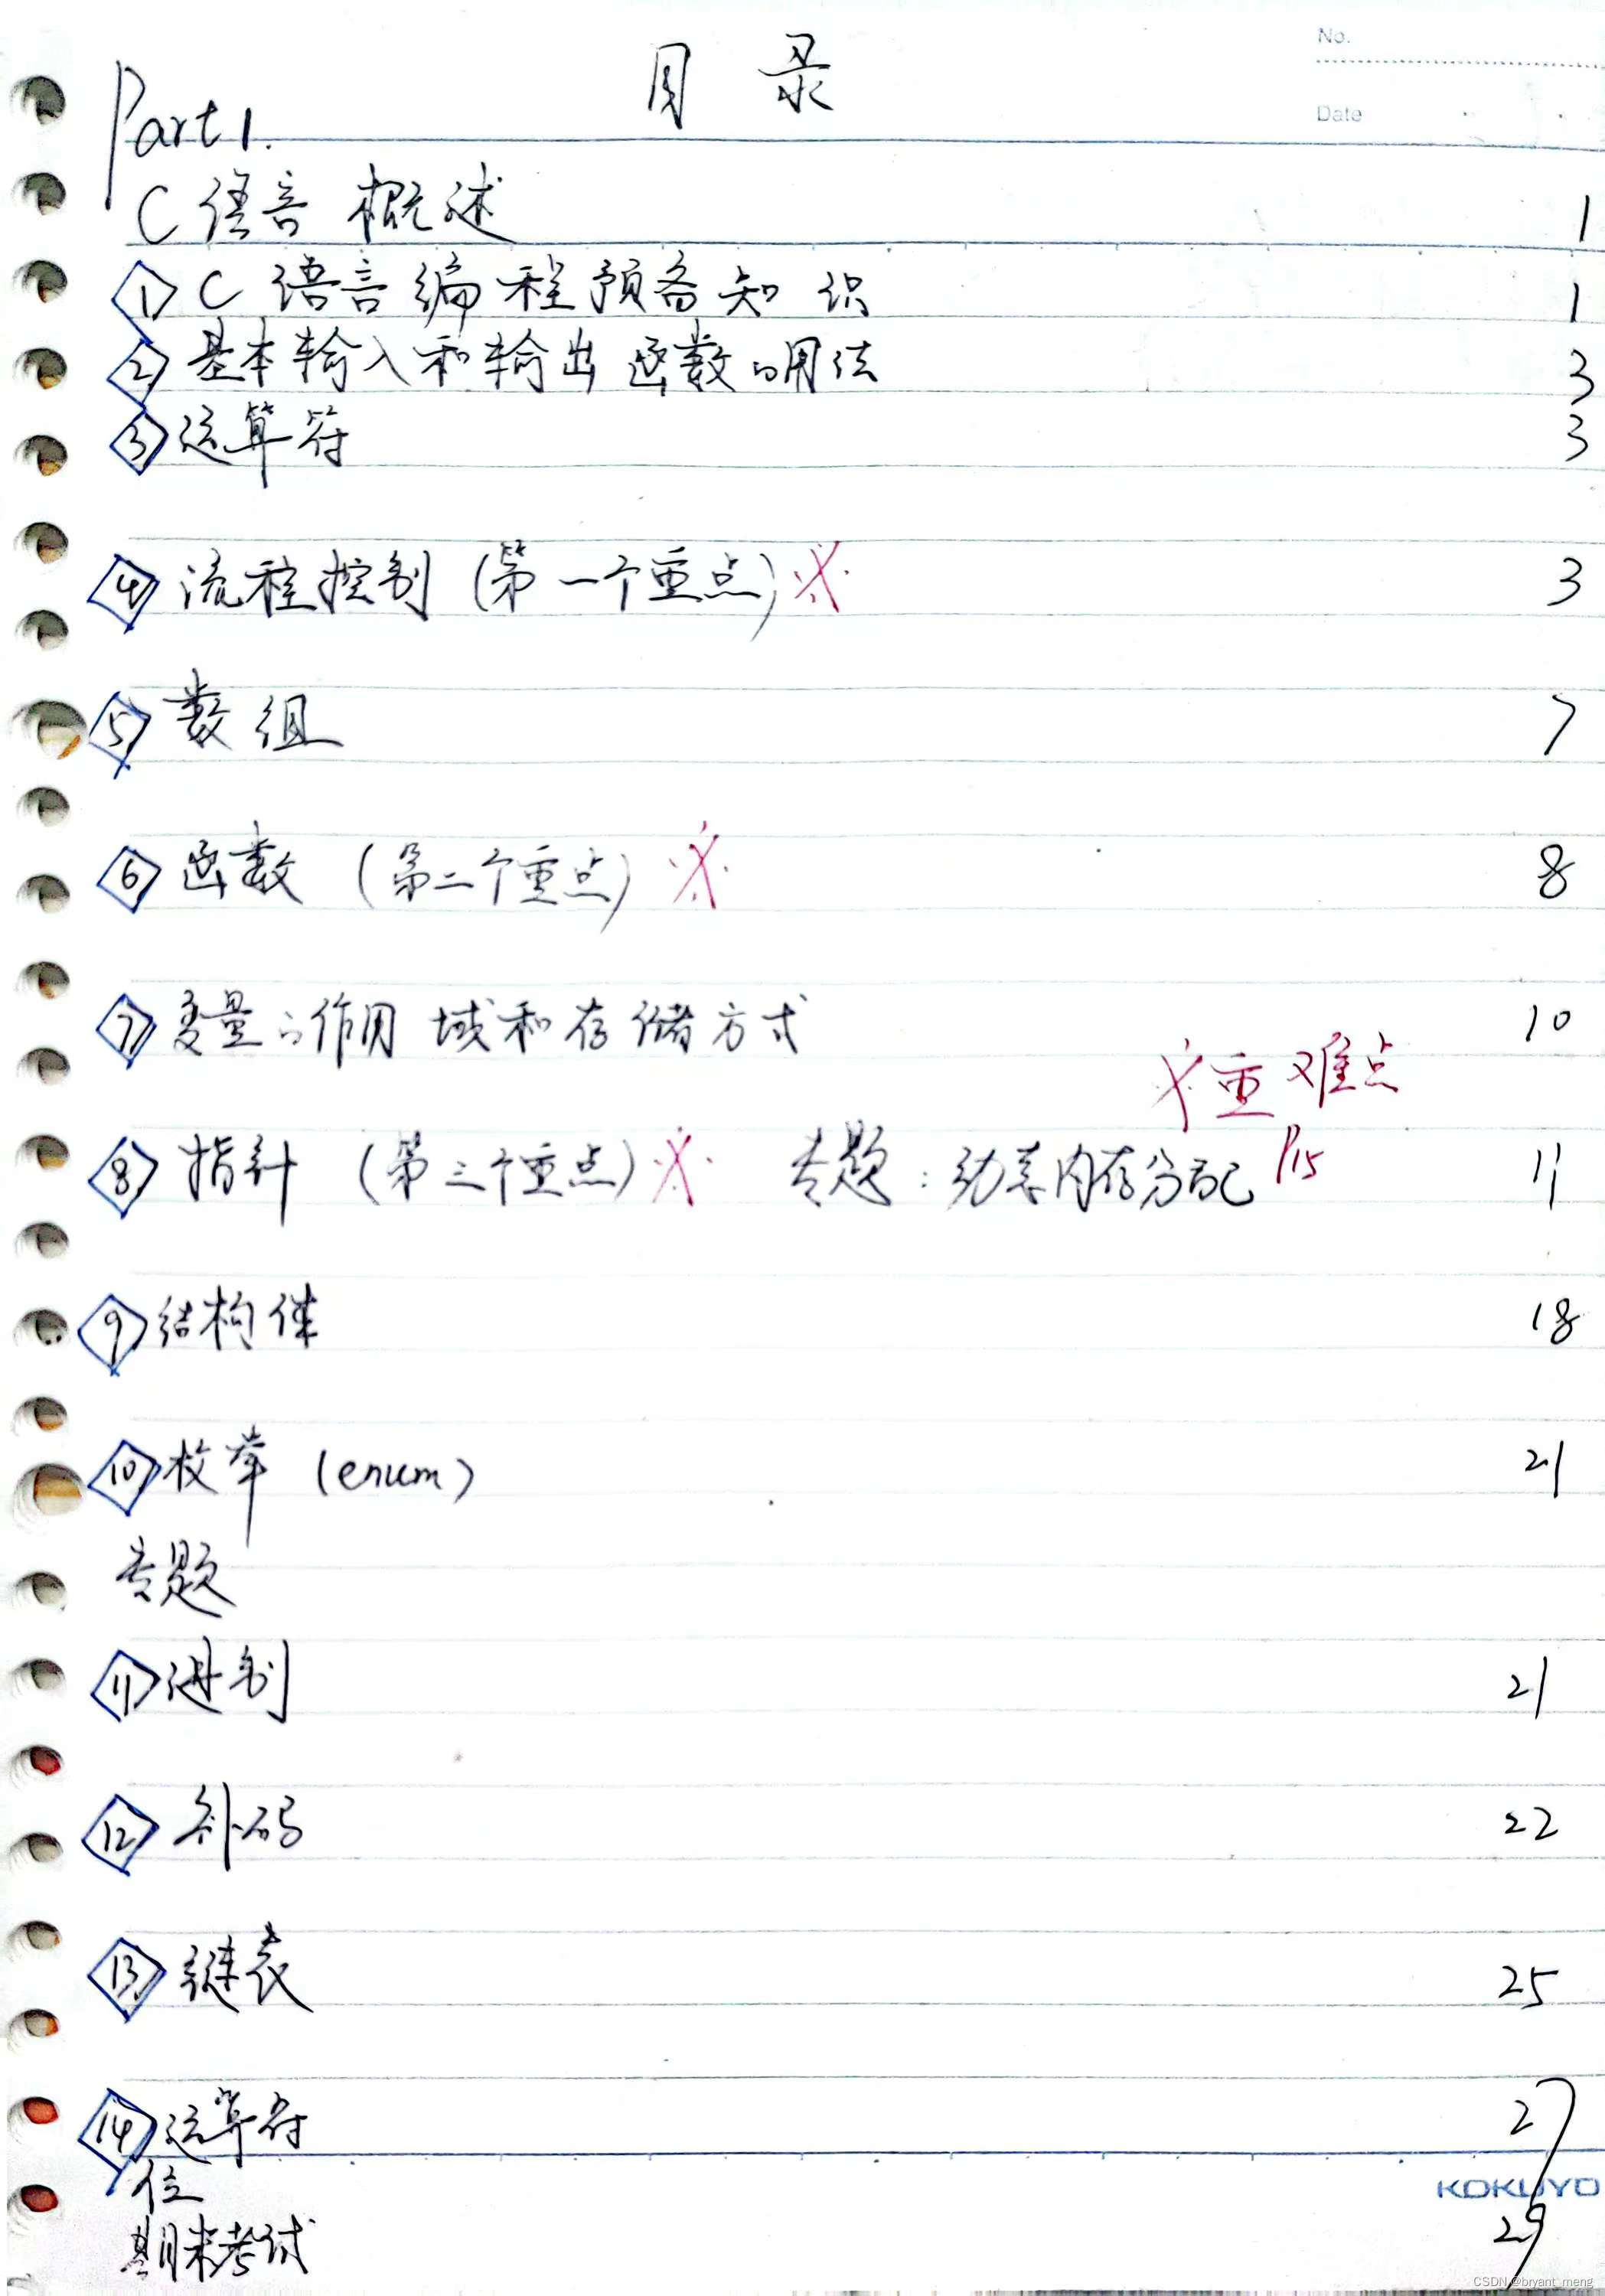 No.
目 录
Date
Part 1.
C 语言 概述 1
1 C 语言编程预备知识 1
2 基本输入和输出函数的用法 3
3 运算符 3
4 流程控制 (第一个重点) ※ 3
5 数组 7
6 函数 (第二个重点) ※ 8
7 变量的作用域和存储方式 10
※重难点
8 指针 (第三个重点) ※ 专题:动态内存分配 P15 11
9 结构体 18
10 枚举 (enum) 21
专题
11 进制 21
12 补码 22
13 链表 25
14 运算符 27
位
KOKUYO
期末考试 29
CSDN @bryant_meng